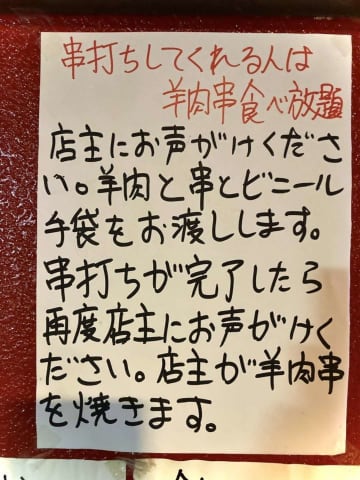 串打ちしてくれる人は
羊肉串食べ放題
店主にお声がけくださ
い。羊肉と串とビニール
手袋をお渡しします。
串打ちが完了したら
再度店主にお声がけく
ださい。店主が羊肉串
を焼きます。